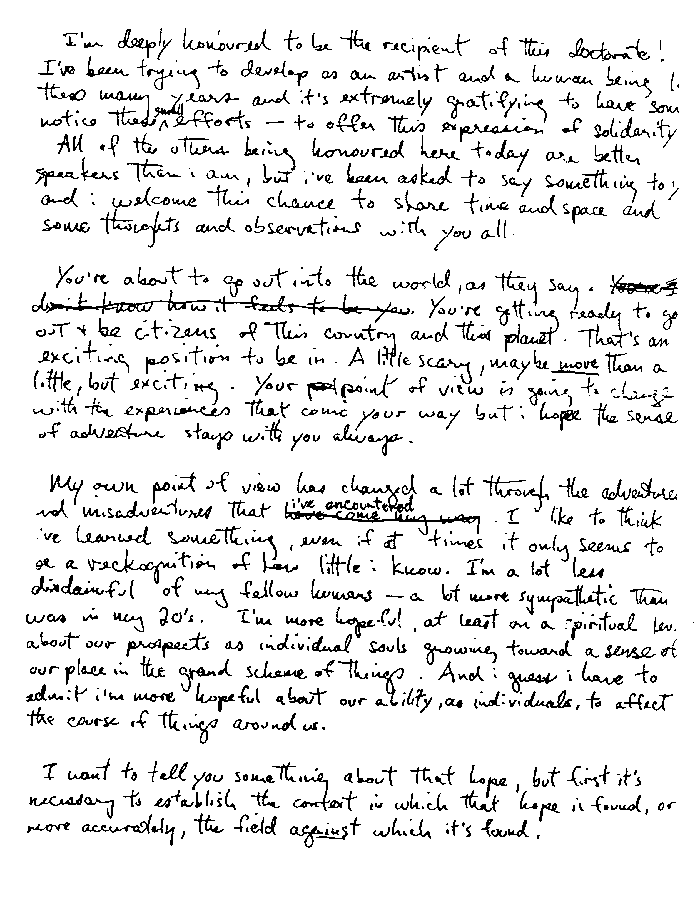 I'm deeply honoured to be the recipient of this doctorate!
I've been trying to develop as an artist and a human being
these many years and it's extremely gratifying to have som
small
notice these efforts — to offer this expression of solidarity
All of the others being honoured here today are better
speakers than i am, but i've been asked to say something to y
and i welcome this chance to share time and space and
some thoughts and observations with you all.
You're about to go out into the world, as they say. You're
don't know how it feels to be you. You're getting ready to go
out + be citizens of this country and this planet. That's an
exciting position to be in. A little scary, maybe more than a
little, but exciting. Your point of view is going to change
with the experiences that come your way but i hope the sense
of adventure stays with you always.
My own point of view has changed a lot through the adventure
nd misadventures that i've encountered
have come my way. I like to think
i've learned something, even if at times it only seems to
be a reckognition of how little i know. I'm a lot less
disdainful of my fellow humans — a lot more sympathetic than
was in my 20's. I'm more hopeful, at least on a spiritual lev
about our prospects as individual souls growing toward a sense of
our place in the grand scheme of things. And i guess i have to
admit i'm more hopeful about our ability, as individuals, to affect
the course of things around us.
I want to tell you something about that hope, but first it's
necessary to establish the context in which that hope is found, or
more accurately, the field against which it's found.